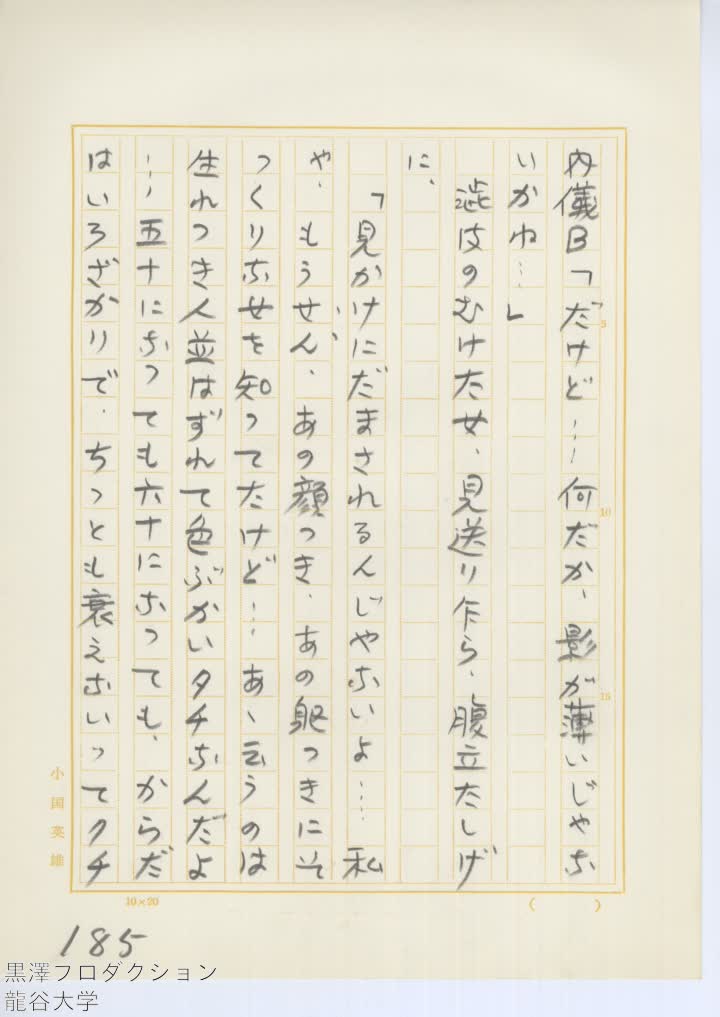 内儀B「だけど…何だか、影が薄いじゃな
いかね…」
渋皮のむけた女、見送り乍ら、腹立たしげ
に、
「見かけにだまされるんじゃないよ…私
や、もうせん、あの顔つき、あの躯つきにそ
っくりな女を知ってたけど…あゝ云うのは
生れつき人並はずれて色ぶかいタチなんだよ
…五十になっても六十になっても、からだ
はいろざかりで、ちっとも衰えないってクチ
5
10
15
小国英雄
10×20
( )
185
黒澤プロダクション
龍谷大学